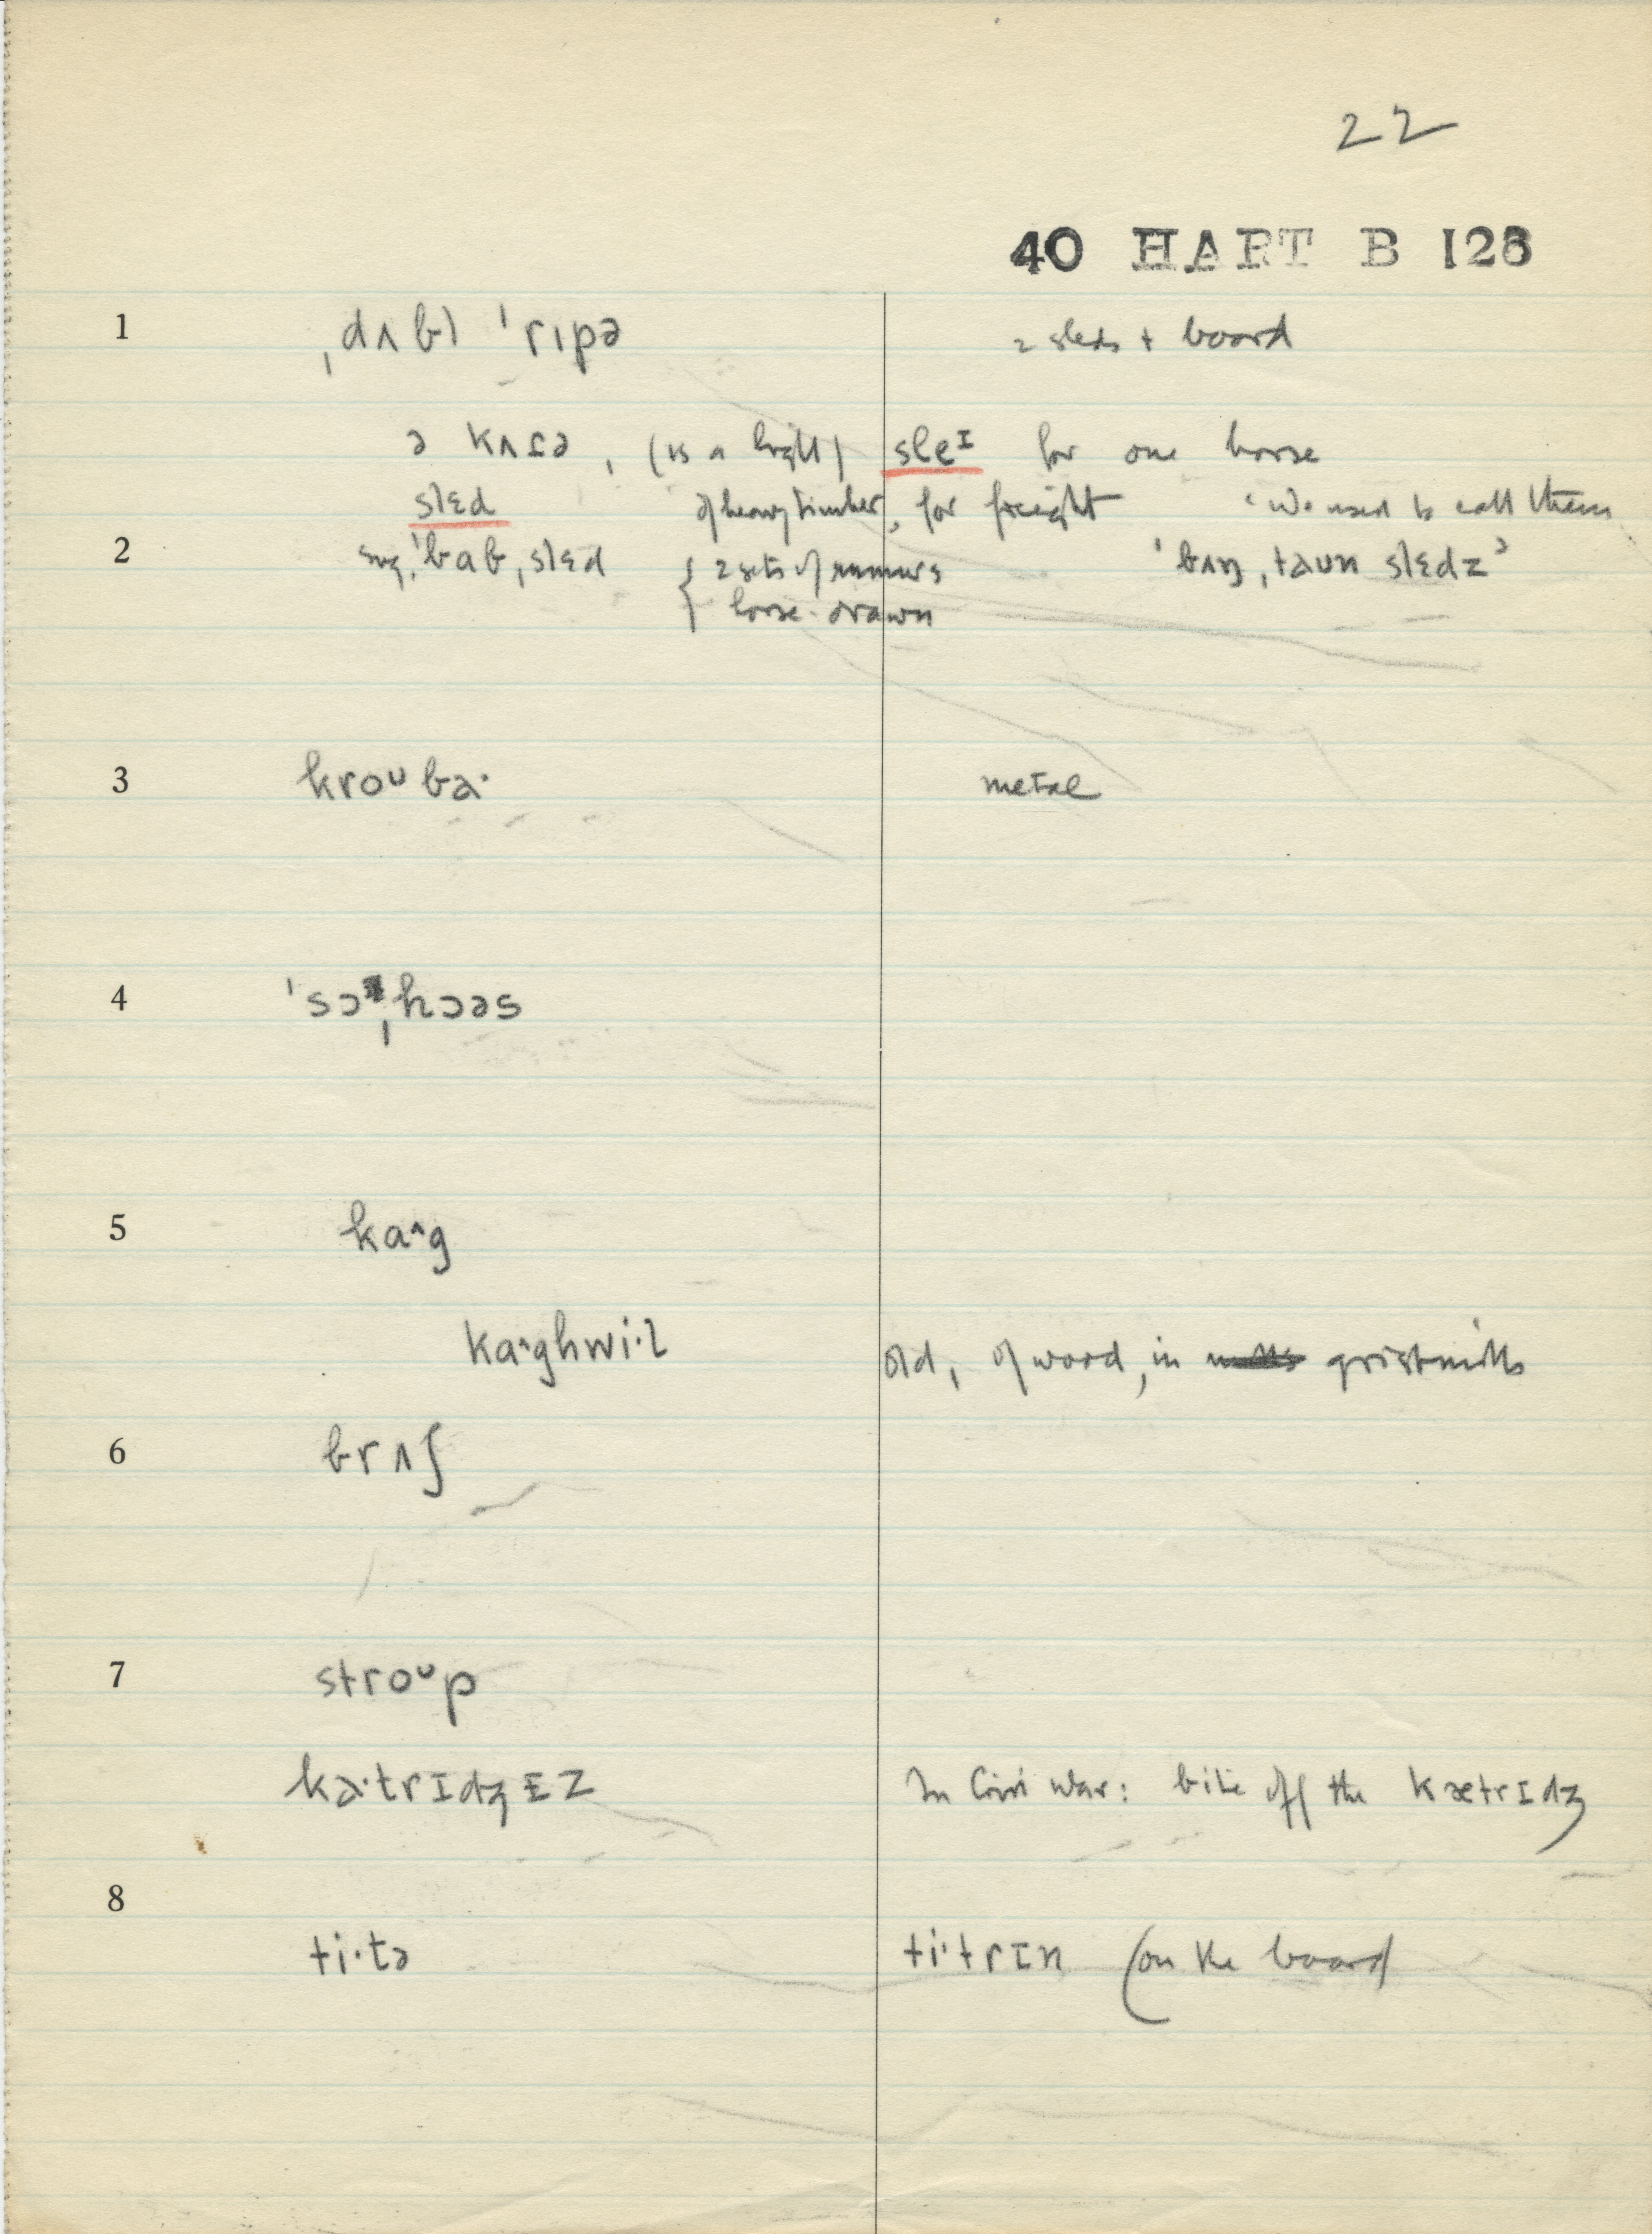 22
40 HART B 128
1 ˌdʌbl ˈrɪpə 2 sleds + board
ə kʌɾə, (is a light) sleᴵ for one horse
slɛd of heavy timber, for freight 'We used to call them
2 ˈbabˌslɛd { 2 sets of runners ˈbʌŋˌtaun slɛdz'
horse-drawn
3 kroᵘba· metal
4 ˈsɔˌhɔəs
5 ka^g
ka^ghwi·l old, of wood, in gristmills
6 brʌʃ
7 stroᵘp
ka·trɪdʒɪz In Civil War: bite off the kætrɪdʒ
8
ti·tə ti·trɪn (on the board